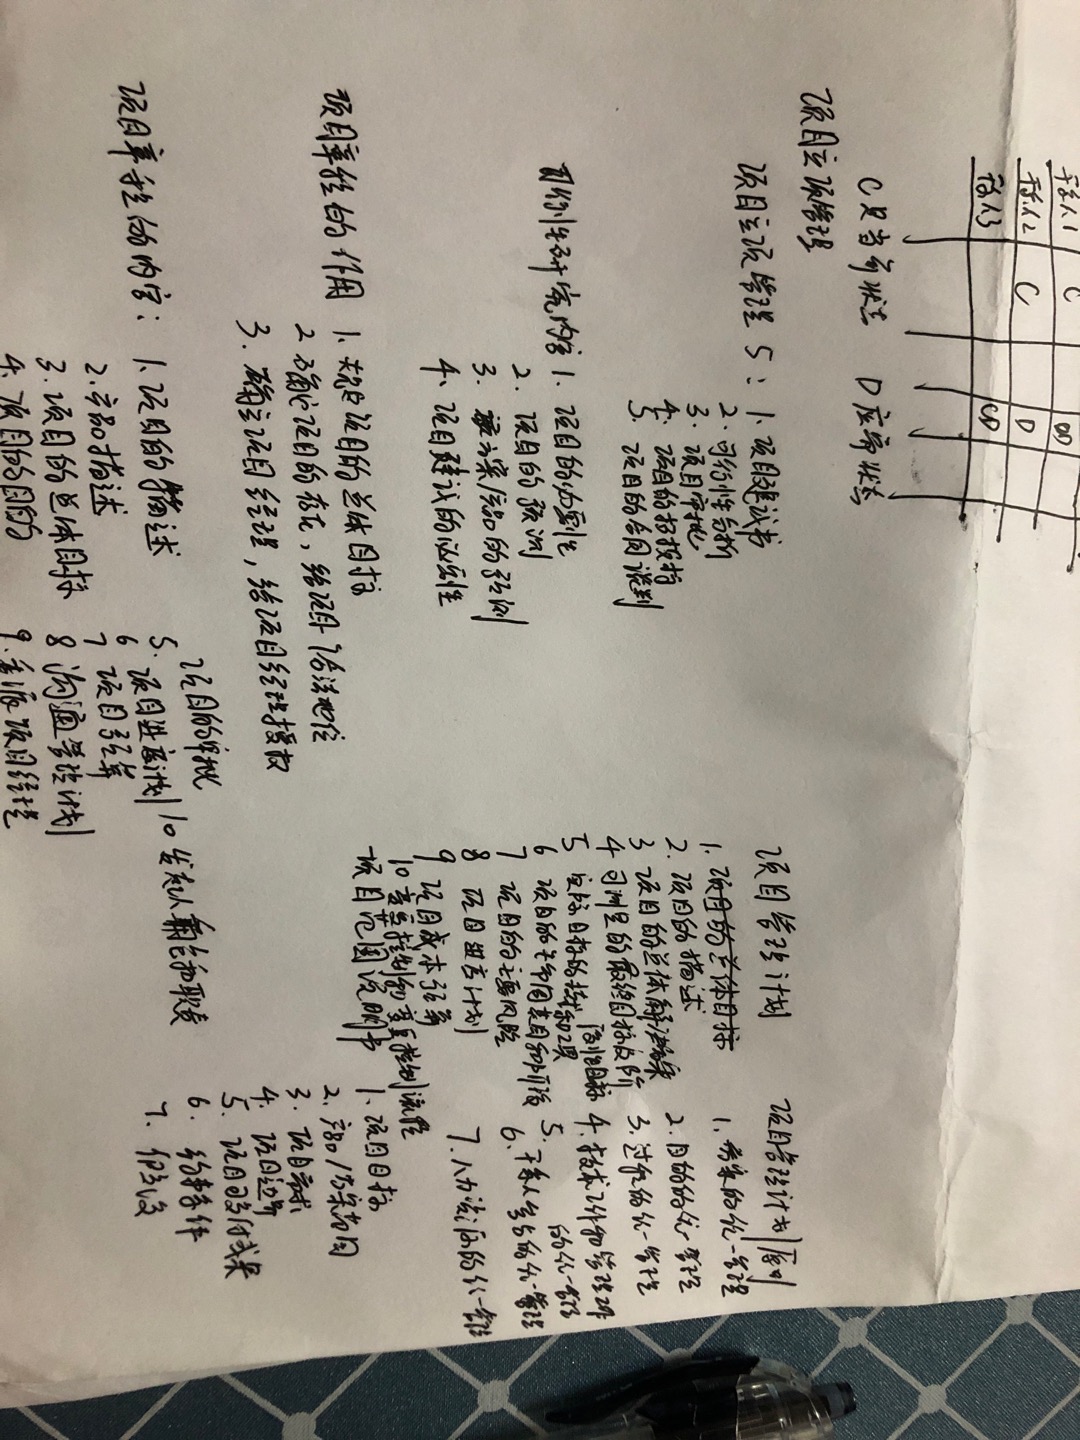 干系人1 C
干系人2 C D
干系人3 CD
C 只当前状态 D 应等状态
项目立项管理
项目立项管理 5:
1. 项目建议书
2. 可行性分析
3. 项目审批
4. 项目的招投标
5. 项目的合同谈判
可行性研究内容
1. 项目的必要性
2. 项目的预测
3. 方案产品的预测
4. 项目建议的必要性
项目章程的作用
1. 项目的总体目标
2 项目的存在,给项目合法地位
3. 确立项目经理,给项目经理授权
项目章程的内容:
1. 项目的描述
2. 产品描述
3. 项目的总体目标
4. 项目的目的
项目的审批
5. 项目进度计划
6
7 项目预算
8 沟通管理计划
9. 项目经理
10 发起人 和职责
项目管理计划
1. 项目的总体目标
2. 项目的描述
3 项目的总体解决方案
4 可测量的最终目标及阶段性目标
5
6 项目的
7 项目的主要风险
8 项目进度计划
9 项目成本预算
10 变更控制的变更控制流程
项目范围说明书
1. 项目目标
2. 产品/方案范围
3. 项目需求
4. 项目边界
5. 项目可交付成果
6. 约束条件
7. 假设
项目管理计划原则
1. 方案的统一管理
2 目的的统一管理
3. 过程的统一管理
4. 技术工作和管理工作的统一管理
5.
6. 干系人参与的统一管理
7. 人力资源的统一管理